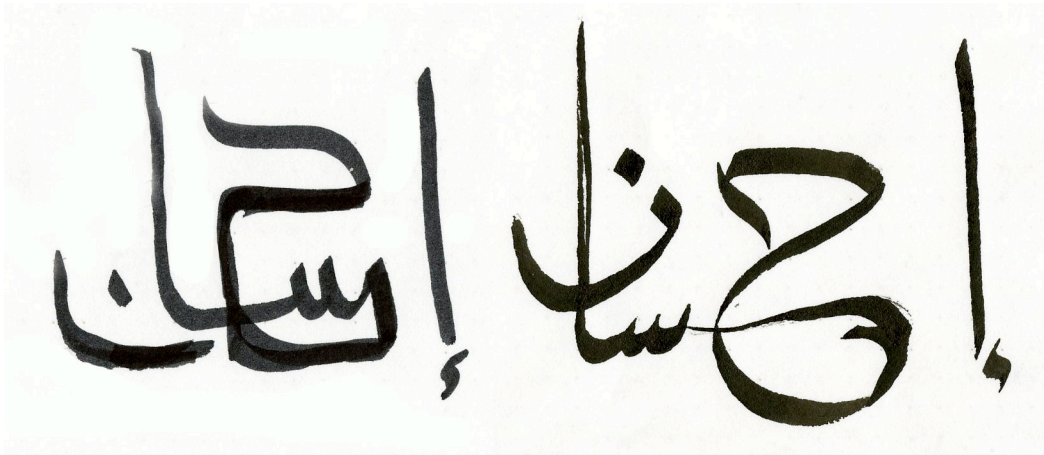 إحسان إحسان